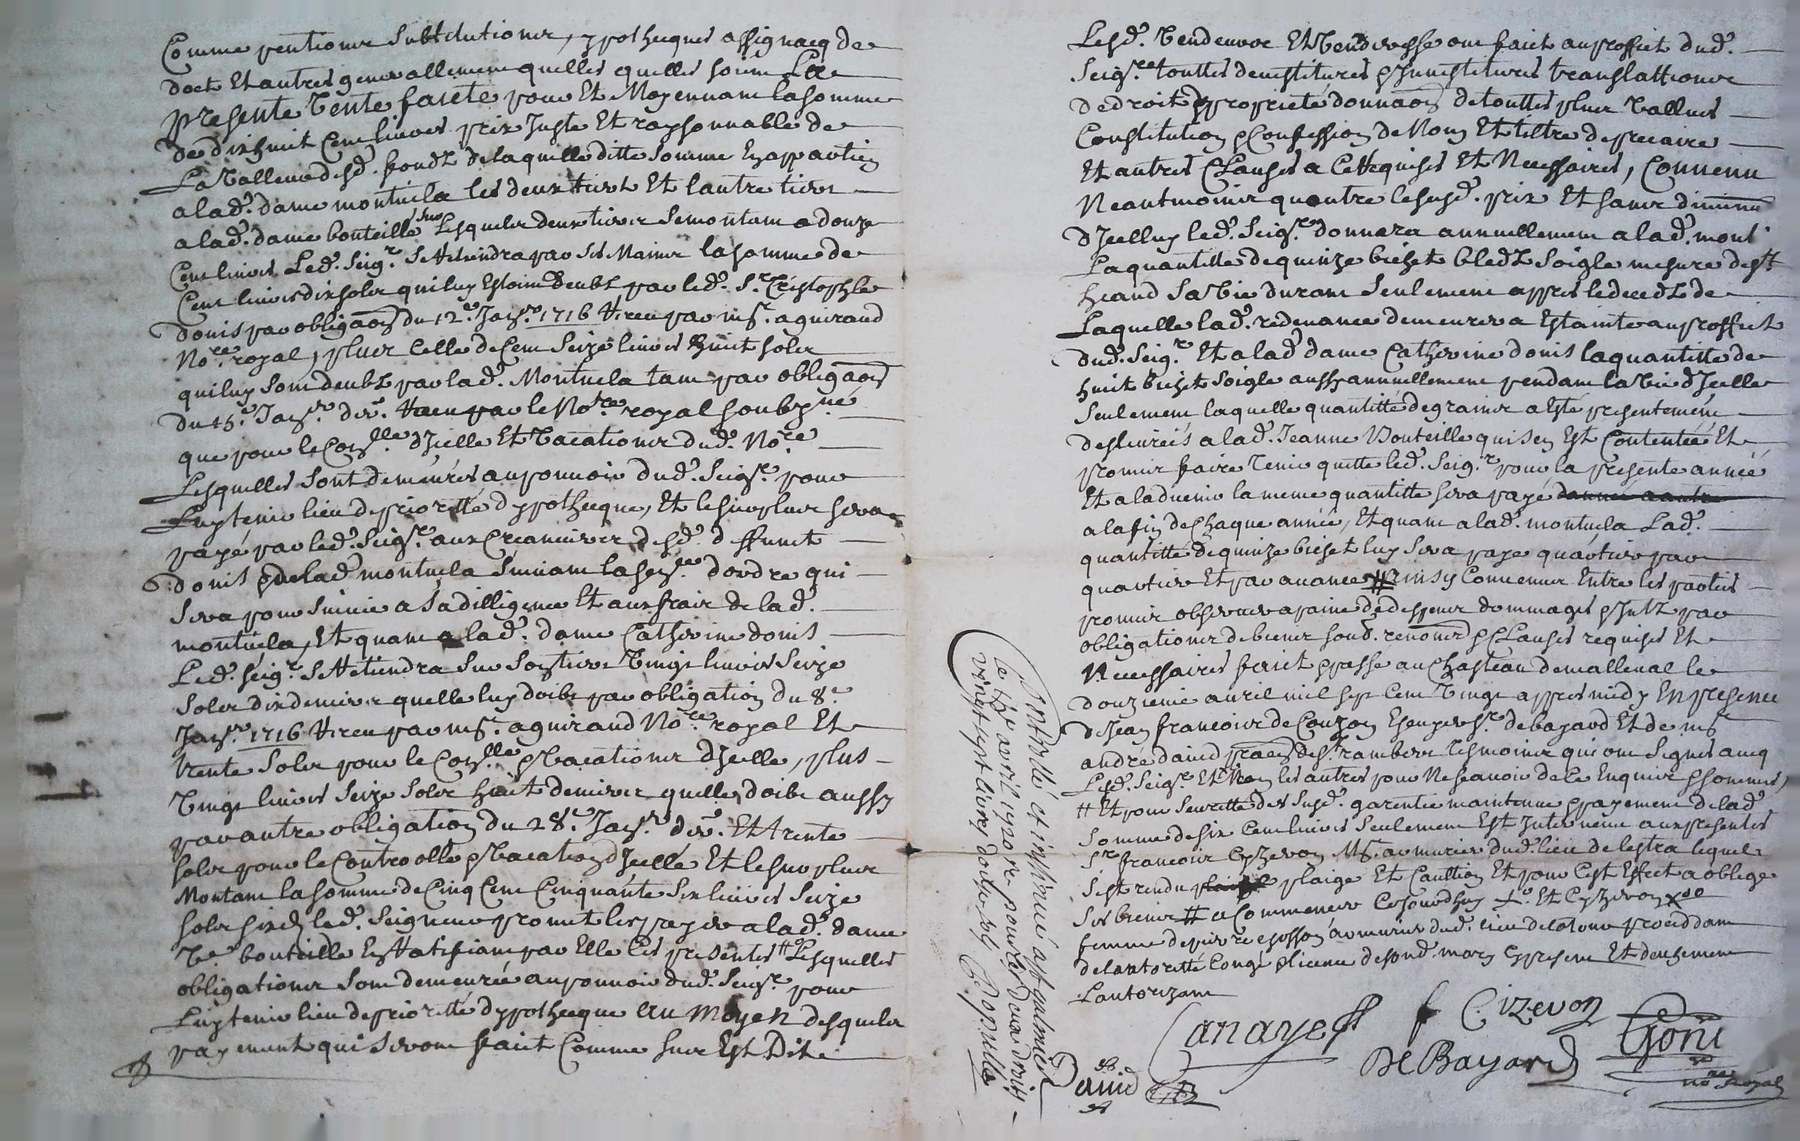 Comme pentionne Substitutionne, ypothecques assignaõn de
doct Et autres generallement quelles quelles soient Lla
presente Vente faicte pour Et Moyennant la somme
de dixhuit Cent livres prix Juste Et raysonnable de
La Valleur desd. fondz de laquelle ditte Somme En appartien
a lad. dame montucla les deux tiers Et l'autre tiers
a lad. dame bouteille sur Lesquelles deux tiers Se montant a douze
Cent livres Led. Seigr. Se Retiendra par ses Mains la somme de
Cent livres dix sols qui luy Estoient Deubz par led. Sr. Cristophle
donis par obligaõn du 12e. Janr. 1716 Receu par me. aguirand
Nore. royal, plus Celle de Cent Seize livres huit sols
qui luy Sont deubz par lad. Montucla tant par obligaõn
du 15e. Janr. dt. Receu par le Nore. royal soubzne.
que pour le Conlle. d'Icelle Et Vacations dud. Nore.
Lesquelles Sont demeurés au pouvoir dud. Seigr. pour
Luy tenir lieu de priorité d'ypothecque, Et le surplus sera
payé par led. Seigr. aux Creanciers desd. deffunct
donis & de lad. montucla Suivant la sence. d'ordre qui
Sera pour Suivie a Sa dilligence Et aux frais de lad.
montucla, Et quant a lad. dame Catherine donis
Led. Seigr. Se Retiendra Sur Son tiers Vingt livres Seize
Sols dix deniers quelle luy doibt par obligation du 8e.
Janr. 1716 Receu par me. aguirand Nore. royal Et
trente Sols pour le Conlle. & Vacations d'Icelle, plus
Vingt livres Seize Sols huit deniers quelle doibt aussy
par autre obligation du 28e. Janr. dt. Et trente
sols pour le Controolle & Vacation d'Icelle Et le surplus
Montant la somme de Cinq Cent Cinquante Six livres Seize
sols six d. led. Seigneur promet les payer a lad. dame
Ve. bouteille En Ratifiant par Elle les presentes # Lesquelles
obligations Sont demeurée au pouvoir dud. Seigr. pour
Luy tenir lieu de priorité d'ypothecque au moyen desquels
payements qui Seront faict Comme Sus Est Dit
Lesd. Vendeuse Et Venderesse ont faict au proffict dud.
Seigr. touttes demistitures & Jnvestitures translattions
de droit & propriété donnaõn de touttes plus Vallues
Constitution & Confession de Nom Et tiltre de precaire
Et autres Clauses a Ce Requises Et Necessaires, Convenu
Neantmoins qu'outre le susd. prix Et sans diminu
d'Jcelluy led. Seigr. donnera annuellement a lad. mont.
La quantitte de quinze bichet bledz Soigle mesure dest
heand Sa Vie durant Seulement appres le decedz de
Laquelle lad. redevance demeurera Estainte au proffict
dud. Seigr. Et a lad. dame Catherine donis la quantitte de
huit bichet Soigle aussy annuellement pendant la Vie d'Jcelle
Seulement laquelle quantitte de grains a Esté presentement
deslivrées a lad. Jeanne Bouteille qui sen Est Contentée Et
promis faire Tenir quitte led. Seigr. pour la presente année
Et a ladvenir la meme quantitte sera payé
a la fin de Chaque année, Et quant a lad. montucla Lad.
quantitte de quinze bichet luy Sera payé quartier par
quartier Et par avance # Ainsy Convenus Entre les parties
promis observer a paine de despens dommages & Jntz par
obligations de biens soud. renond. & Clauses requises Et
Necessaires faict & passe au Chasteau de mallenal le
douzieme avril mil sept Cent Vingt appres midy En presence
de Jean francois de Couzon Escuyer Sr. de bayard Et de me
andré david praõn de St. rambert tesmoins qui ont Signés avec
Led. Seigr. Et Non les autres pour Ne scavoir de ce Enquis & sommés,
# Et pour Seurette des Susd. garentie maintenue & payement de lad.
Somme de six Cent livres Seulement Est Intervenu aux presentes
Sr. francois Cyzeron Me. armurier dud. lieu de lestra lequel
S'est rendu plaige Et Caution Et pour C'est Effet a oblige
Ses biens # a Commencer Ce Jourdhuy
femme de pierre armurier dud. lieu de procedant
de l'autoritté Congé & licence de sond. mary present Et deuement
Lautorizant
Canaye f C. Cizeron
De Bayard Goni
nore Royal
David
Controllé et insinué a St galmier
le 17e avril 1720 re. pour les deux droits
vingt sept livres douze sols Populle